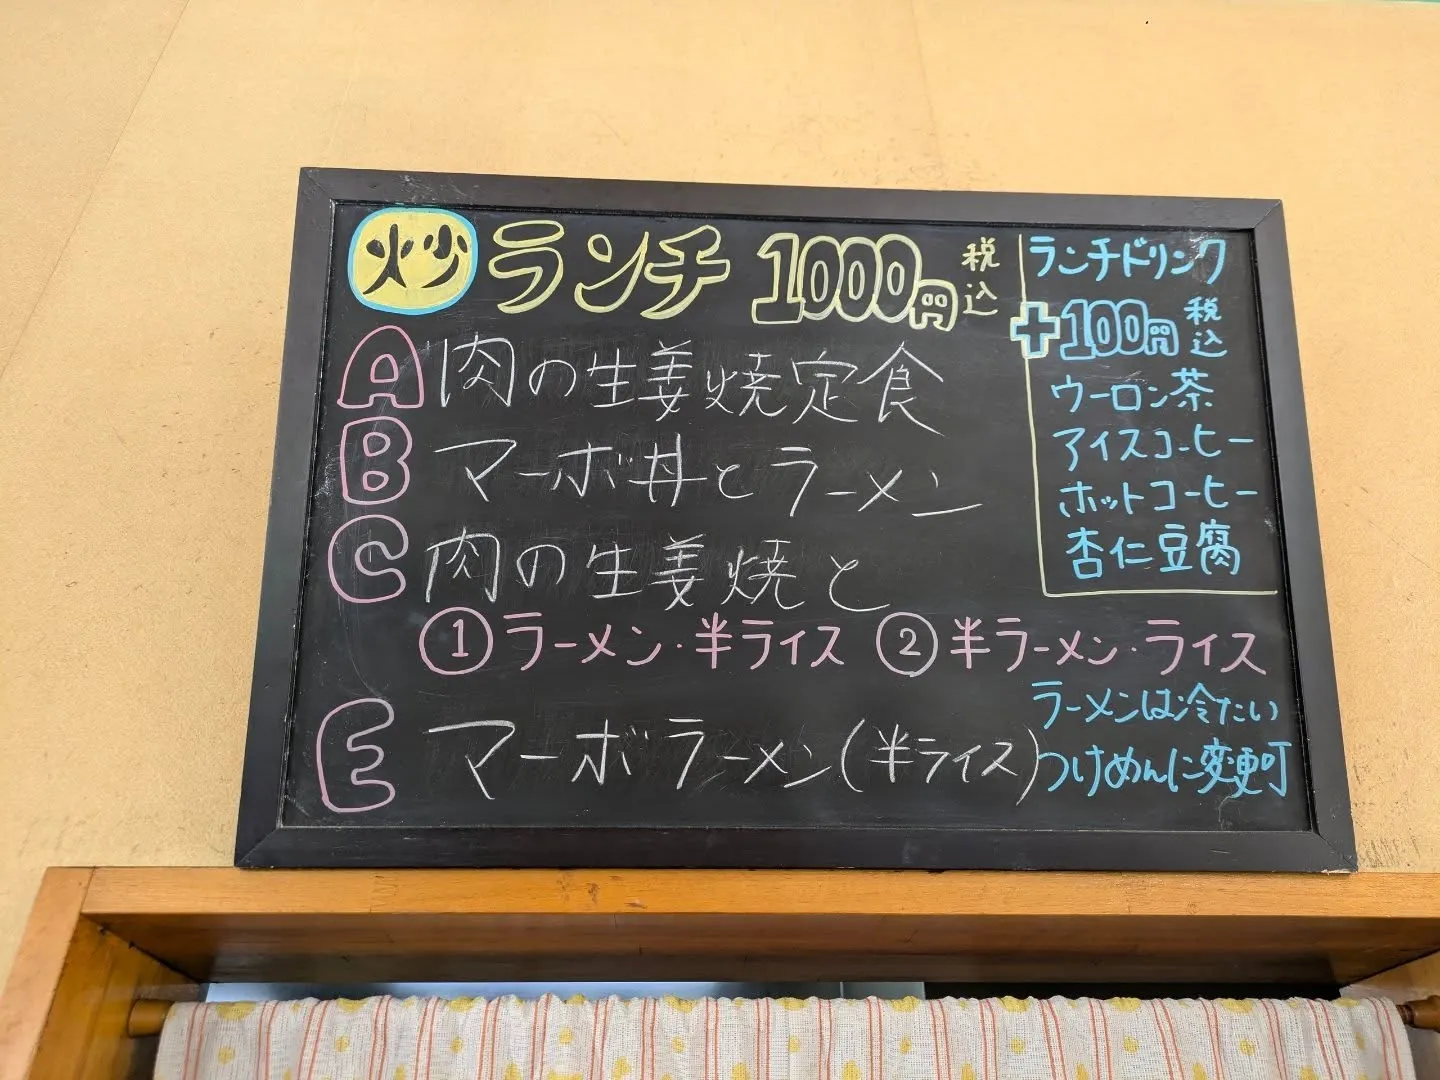 炒 ランチ 1000円 税込
A 肉の生姜焼定食
B マーボ丼とラーメン
C 肉の生姜焼と
①ラーメン・半ライス ②半ラーメン・ライス
E マーボラーメン(半ライス)
ラーメンは冷たい
つけめんに変更可
ランチドリンク
+100円 税込
ウーロン茶
アイスコーヒー
ホットコーヒー
杏仁豆腐